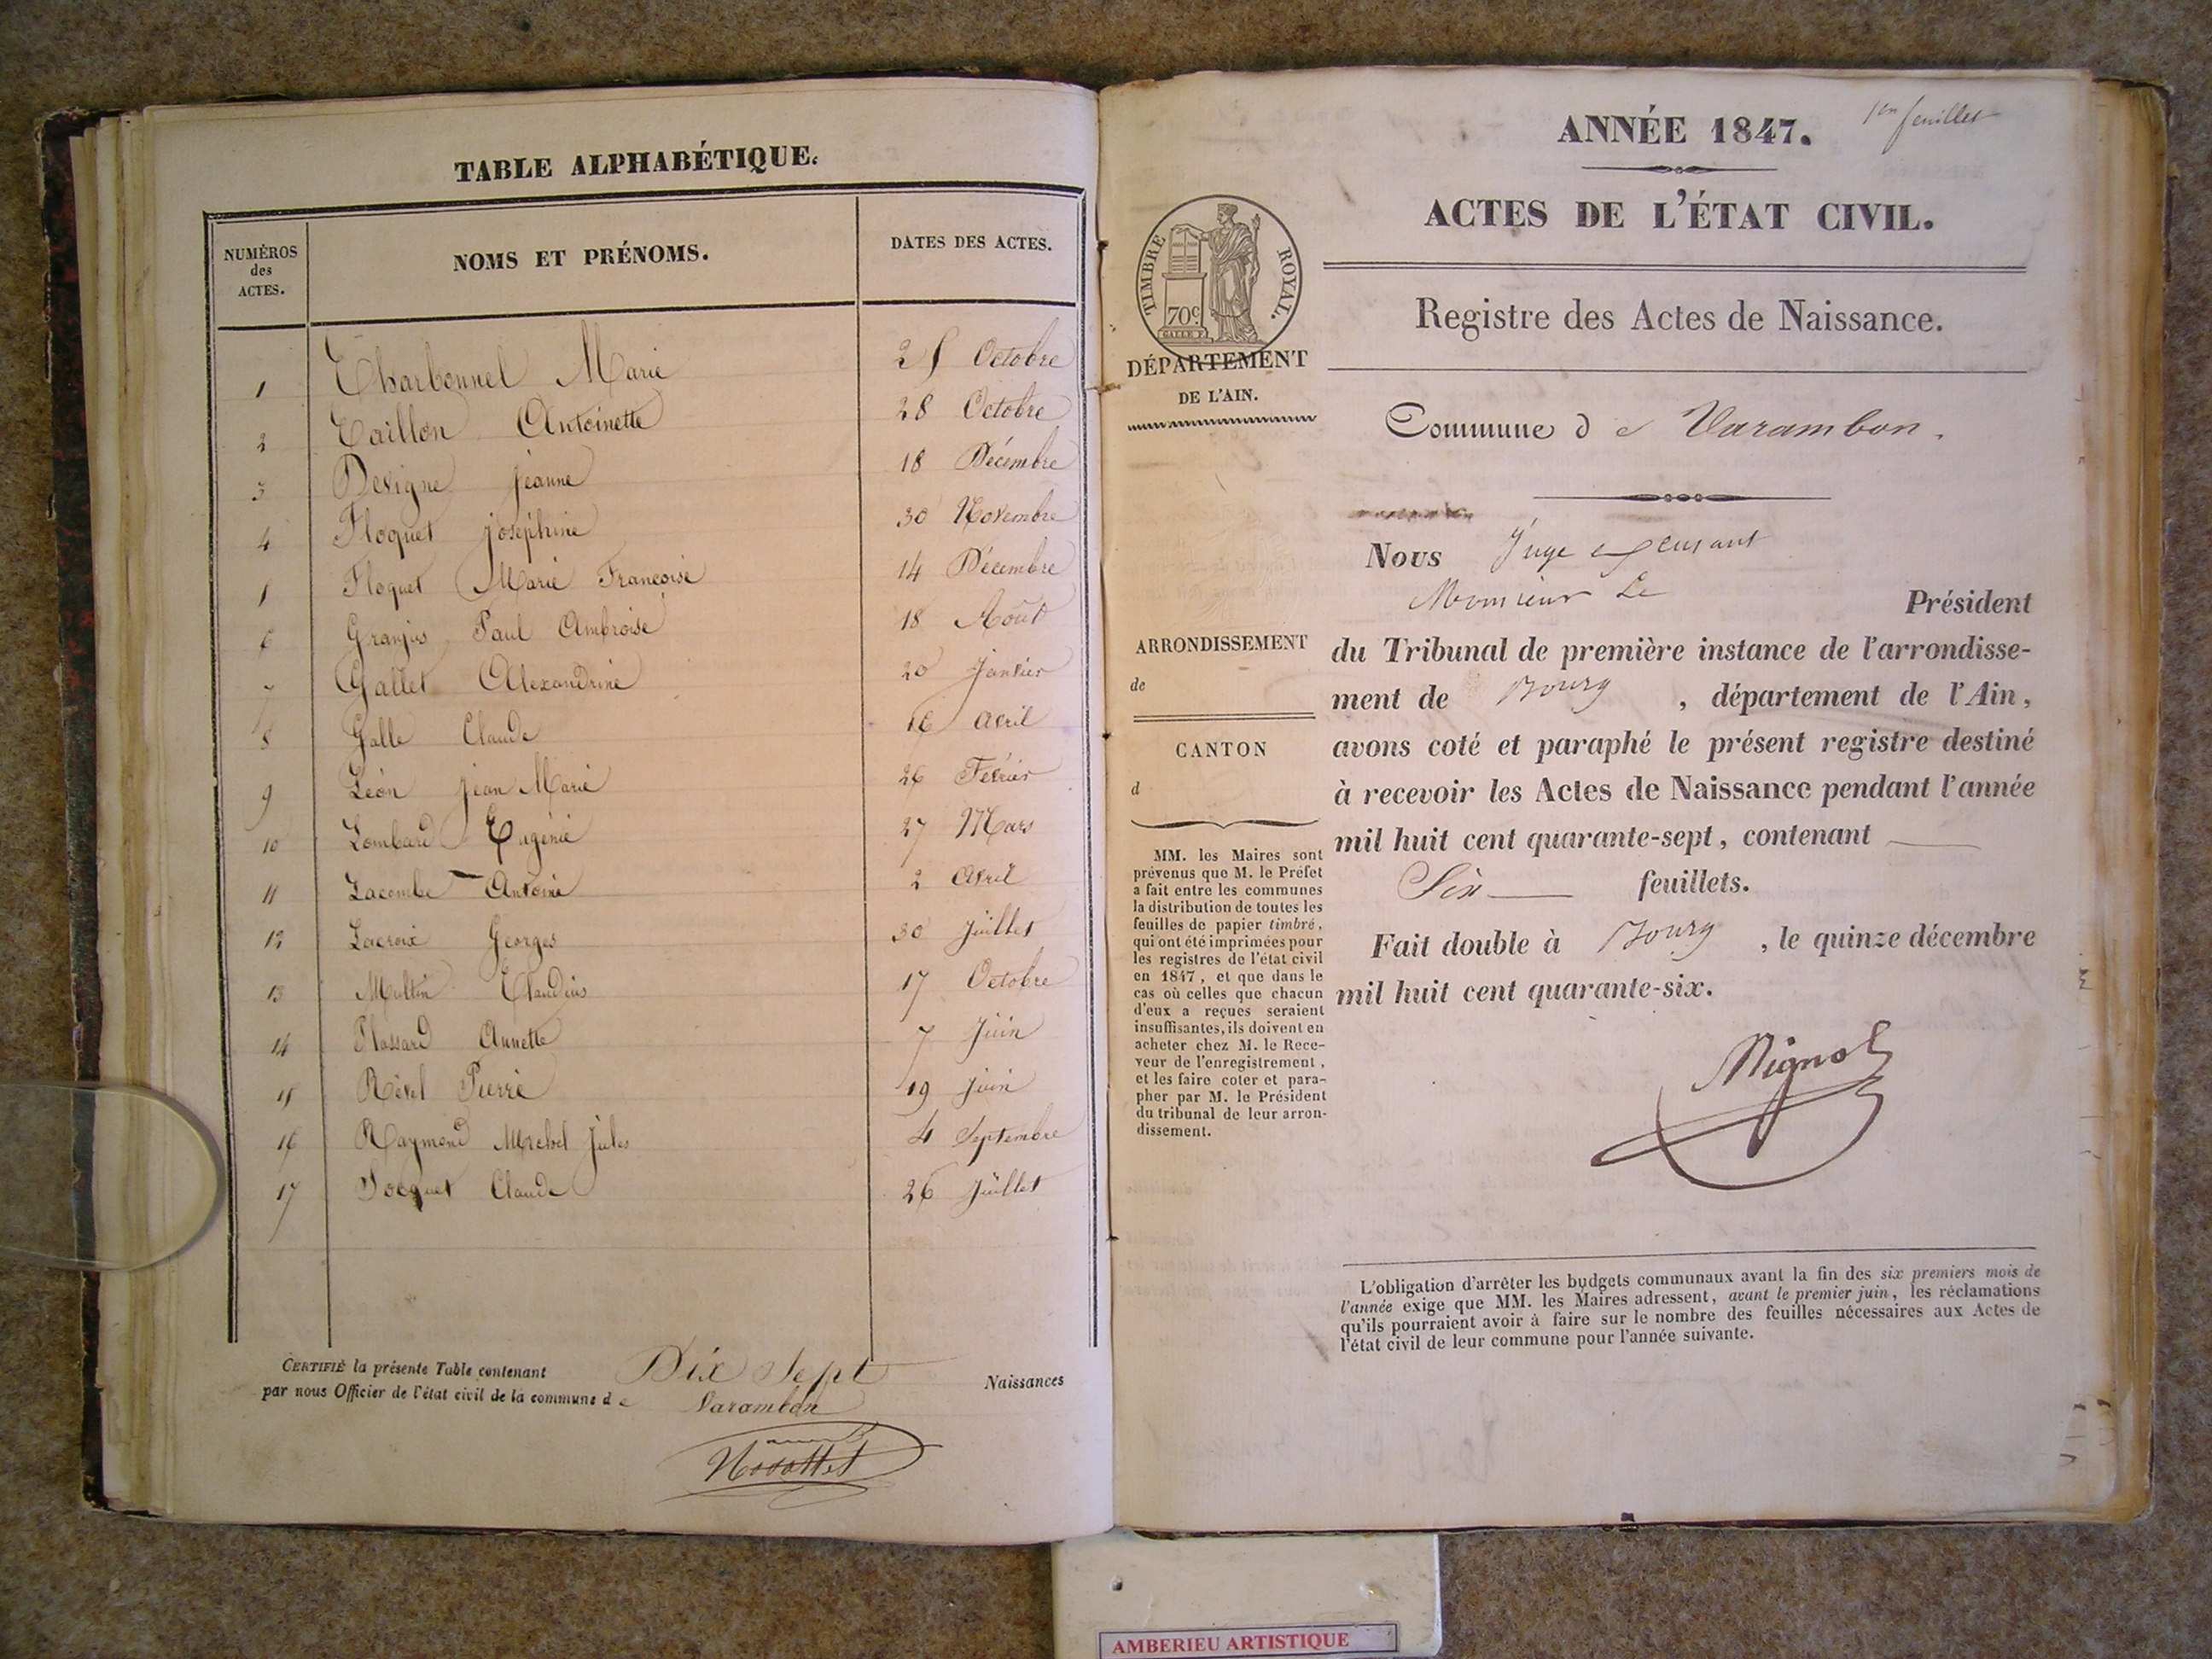 TABLE ALPHABÉTIQUE.
NUMÉROS des ACTES.
NOMS ET PRÉNOMS.
DATES DES ACTES.
1 Charbonnel Marie 25 Octobre
2 Caillon Antoinette 28 Octobre
3 Devigne jeanne 18 Décembre
4 Floquet joséphine 30 Novembre
5 Floquet Marie Françoise 14 Décembre
6 Granjus Paul Ambroise 18 Août
7 Gallet Alexandrine 20 janvier
8 Galle Claude 16 avril
9 Léon jean Marie 26 Février
10 Lombard Eugénie 27 Mars
11 Lacombe Antoine 2 Avril
12 Lacroix Georges 30 juillet
13 Claudius 17 Octobre
14 Plassard Annette 7 juin
15 Révol Pierre 19 juin
16 Raymond Michel Jules 4 Septembre
17 Claude 26 juillet
CERTIFIÉ la présente Table contenant Dix Sept Naissances
par nous Officier de l'état civil de la commune de Varambon
1er feuillet
ANNÉE 1847.
ACTES DE L'ÉTAT CIVIL.
TIMBRE ROYAL.
70c
Registre des Actes de Naissance.
DÉPARTEMENT
DE L'AIN.
Commune de Varambon.
Nous Juge
Monsieur Le Président
ARRONDISSEMENT
de
CANTON
d
du Tribunal de première instance de l'arrondisse-
ment de Bourg, département de l'Ain,
avons coté et paraphé le présent registre destiné
à recevoir les Actes de Naissance pendant l'année
mil huit cent quarante-sept, contenant
Six feuillets.
Fait double à Bourg, le quinze décembre
mil huit cent quarante-six.
MM. les Maires sont
prévenus que M. le Préfet
a fait entre les communes
la distribution de toutes les
feuilles de papier timbré,
qui ont été imprimées pour
les registres de l'état civil
en 1847, et que dans le
cas où celles que chacun
d'eux a reçues seraient
insuffisantes, ils doivent en
acheter chez M. le Rece-
veur de l'enregistrement,
et les faire coter et para-
pher par M. le Président
du tribunal de leur arron-
dissement.
L'obligation d'arrêter les budgets communaux avant la fin des six premiers mois de
l'année exige que MM. les Maires adressent, avant le premier juin, les réclamations
qu'ils pourraient avoir à faire sur le nombre des feuilles nécessaires aux Actes de
l'état civil de leur commune pour l'année suivante.
AMBERIEU ARTISTIQUE